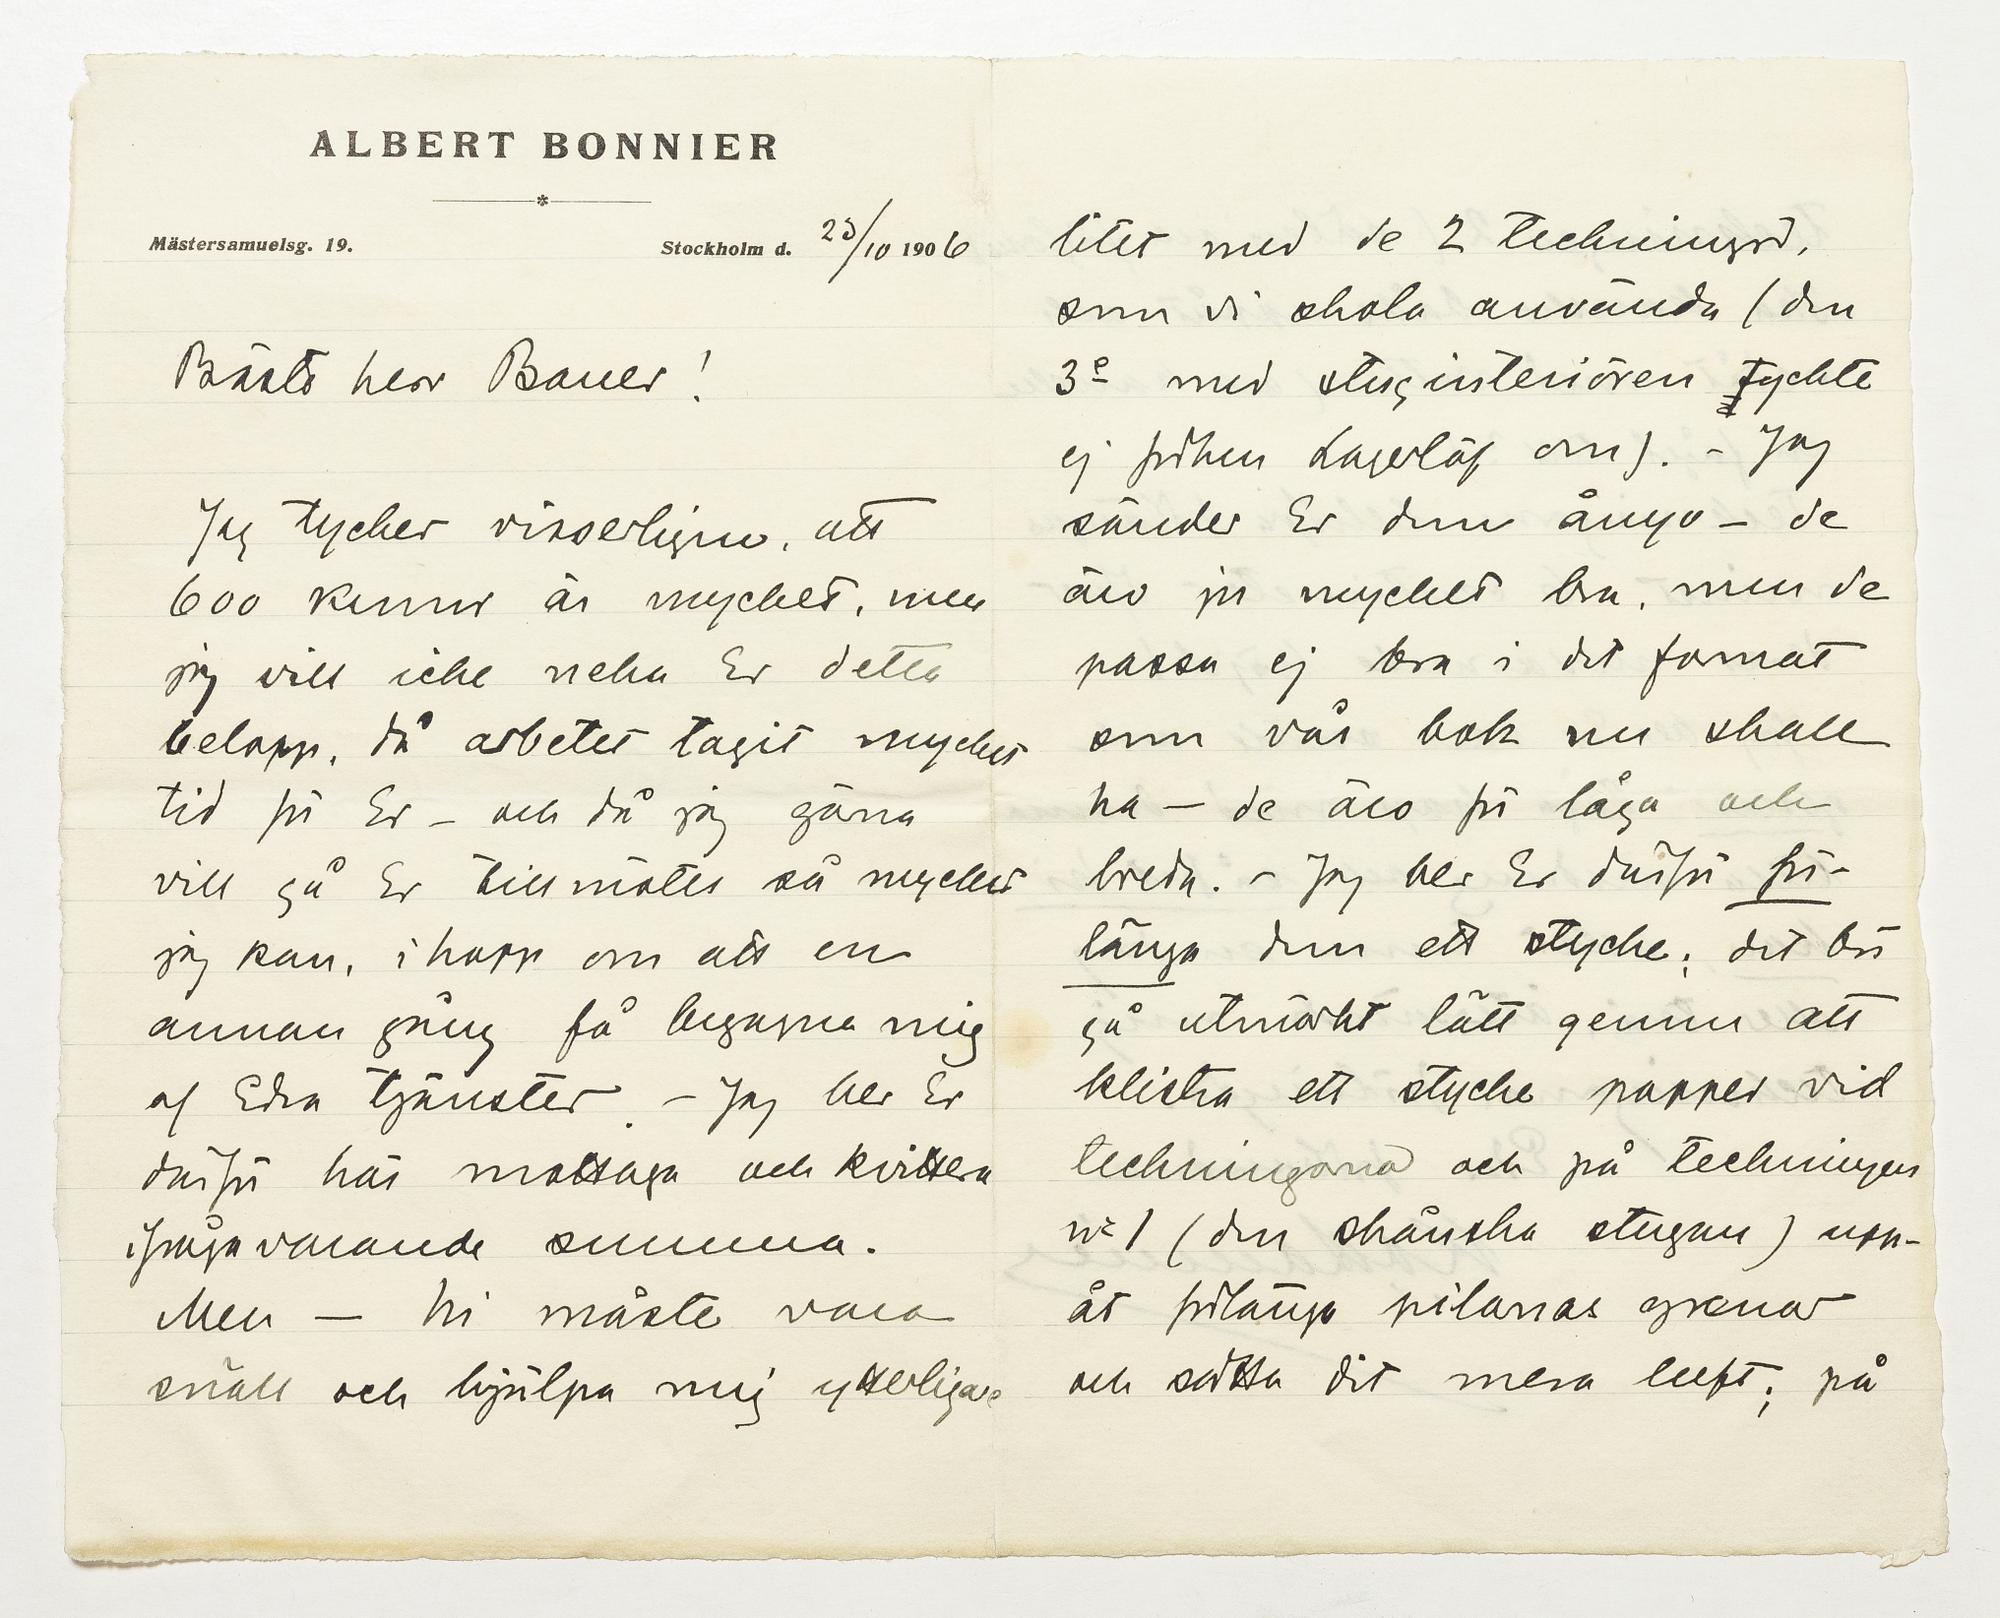 ALBERT BONNIER
Mästersamuelsg. 19.
Stockholm d. 23/10 1906
Bäste herr Bauer!
Jag tycker visserligen, att
600 kronor är mycket, men
jag vill icke neka Er detta
belopp, då arbetet tagit mycket
tid för Er – och då jag gärna
vill gå Er till mötes så mycket
jag kan, i hopp om att en
annan gång få begagna mig
af Edra tjänster. – Jag ber Er
därför här mottaga och kvittera
ifrågavarande summa.
Men – Ni måste vara
snäll och hjälpa mig ytterligare
litet med de 2 teckningar,
som vi skola använda (den
3e med stuginteriören tyckte
ej fröken Lagerlöf om). – Jag
sänder Er dem ånyo – de
äro ju mycket bra, men de
passa ej bra i det format
som vår bok nu skall
ha – de äro för låga och
breda. – Jag ber Er därför för-
länga dem ett stycke; det bör
gå utmärkt lätt genom att
klistra ett stycke papper vid
teckningarna och på teckningen
no 1 (den skånska stugan) upp-
åt förlänga pilarnas grenar
och sätta dit mera luft; på